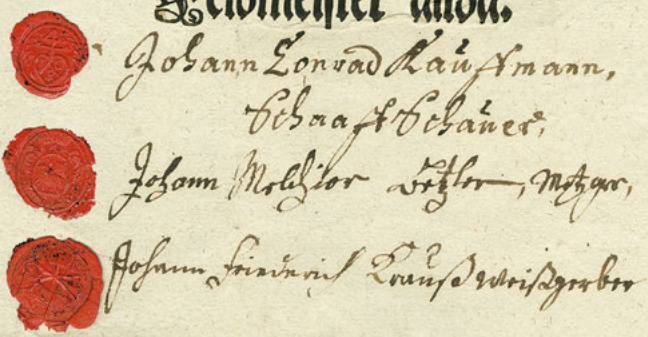 Johann Conrad Kauffmann,
Schaafft Schauer,
Johann Melchior Metzger,
Johann Friederich Krauß Weißgerber